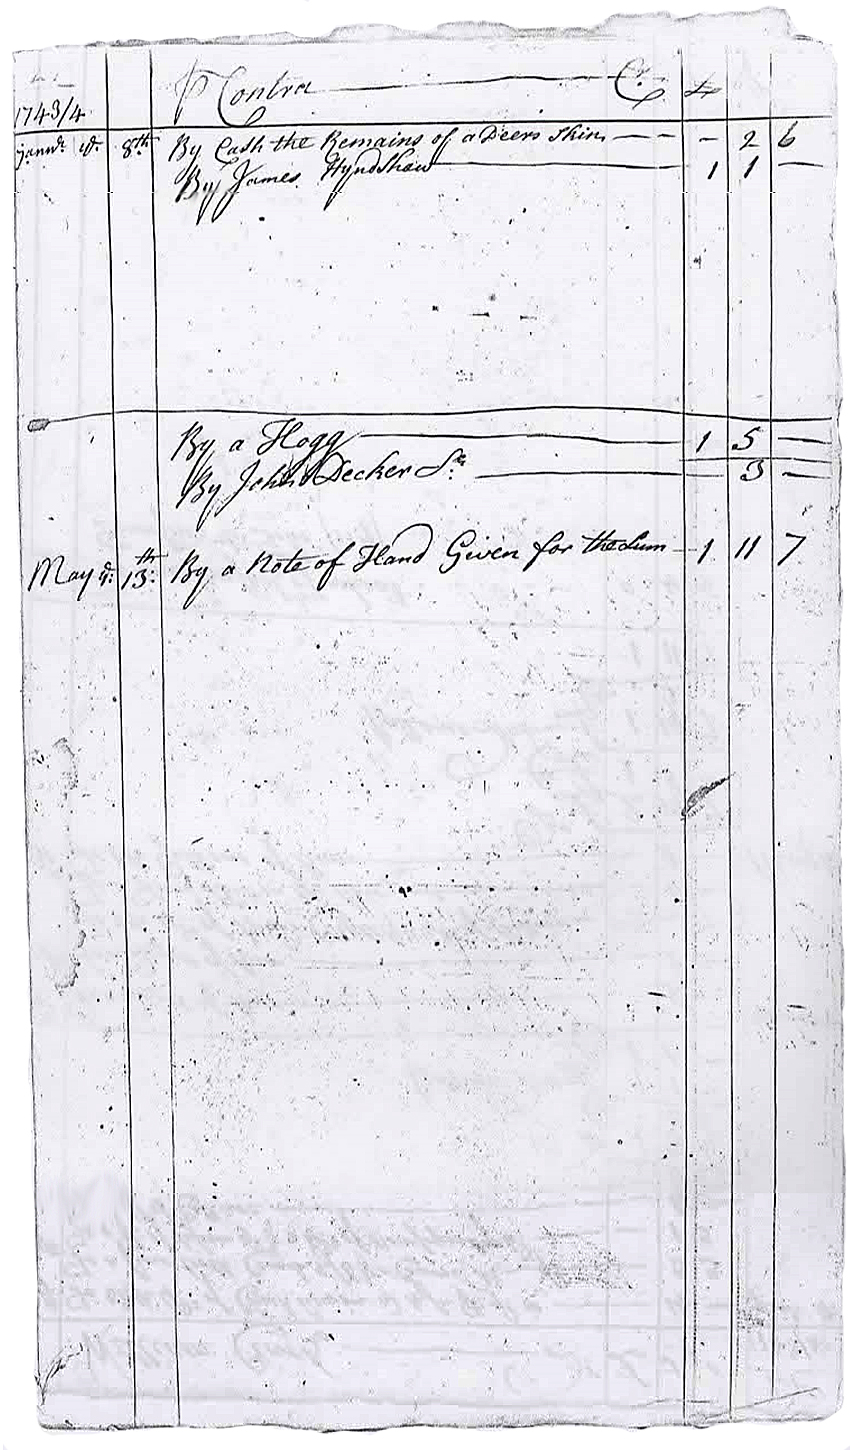 Contra Cr. £
1743/4
8th By Cash the Remains of a Deers Skin — - 2 6
By James Hyndshaw — 1 1 —
By a Hogg — 1 5 —
By John Decker Sr. — 3 —
May ye: 13th: By a Note of Hand Given for the Sum — 1 11 7